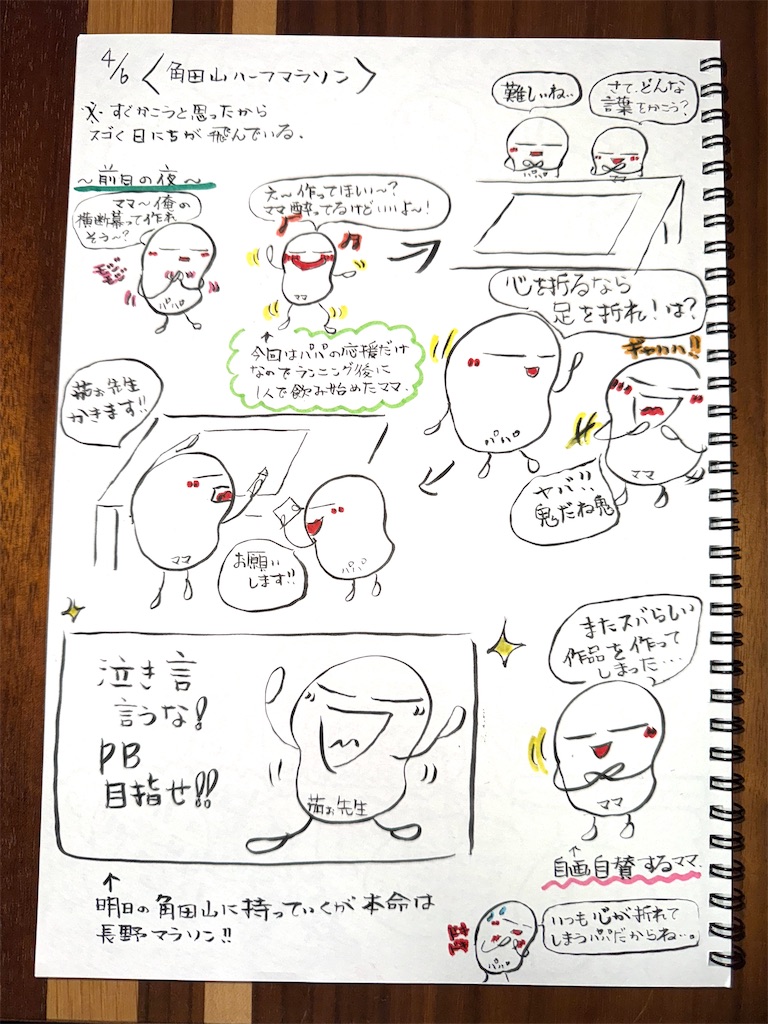 4/6 〈角田山ハーフマラソン〉
※すぐかこうと思ったから
スゴく日にちが飛んでいる。
〜前日の夜〜
ママ〜俺の
横断幕って作れ
そう〜?
モジ
モジ
パパ
え〜作ってほしい〜?
ママ酔ってるけどいいよ〜!
ママ
↑
今回はパパの応援だけ
なのでランニング後に
1人で飲み始めたママ.
難しいね..
さて、どんな
言葉をかこう?
パパ
ママ
心を折るなら
足を折れ!は?
パパ
ギャハハ!!
ママ
ヤバ!!
鬼だね鬼
茄お先生
かきます!!
ママ
お願い
します!!
パパ
泣き言
言うな!
PB
目指せ!!
茄お先生
↑
明日の角田山に持っていくが本命は
長野マラソン!!
またスバらしい
作品を作って
しまった…
ママ
↑
自画自賛するママ.
いつも心が折れて
しまうパパだからね…。
パパ